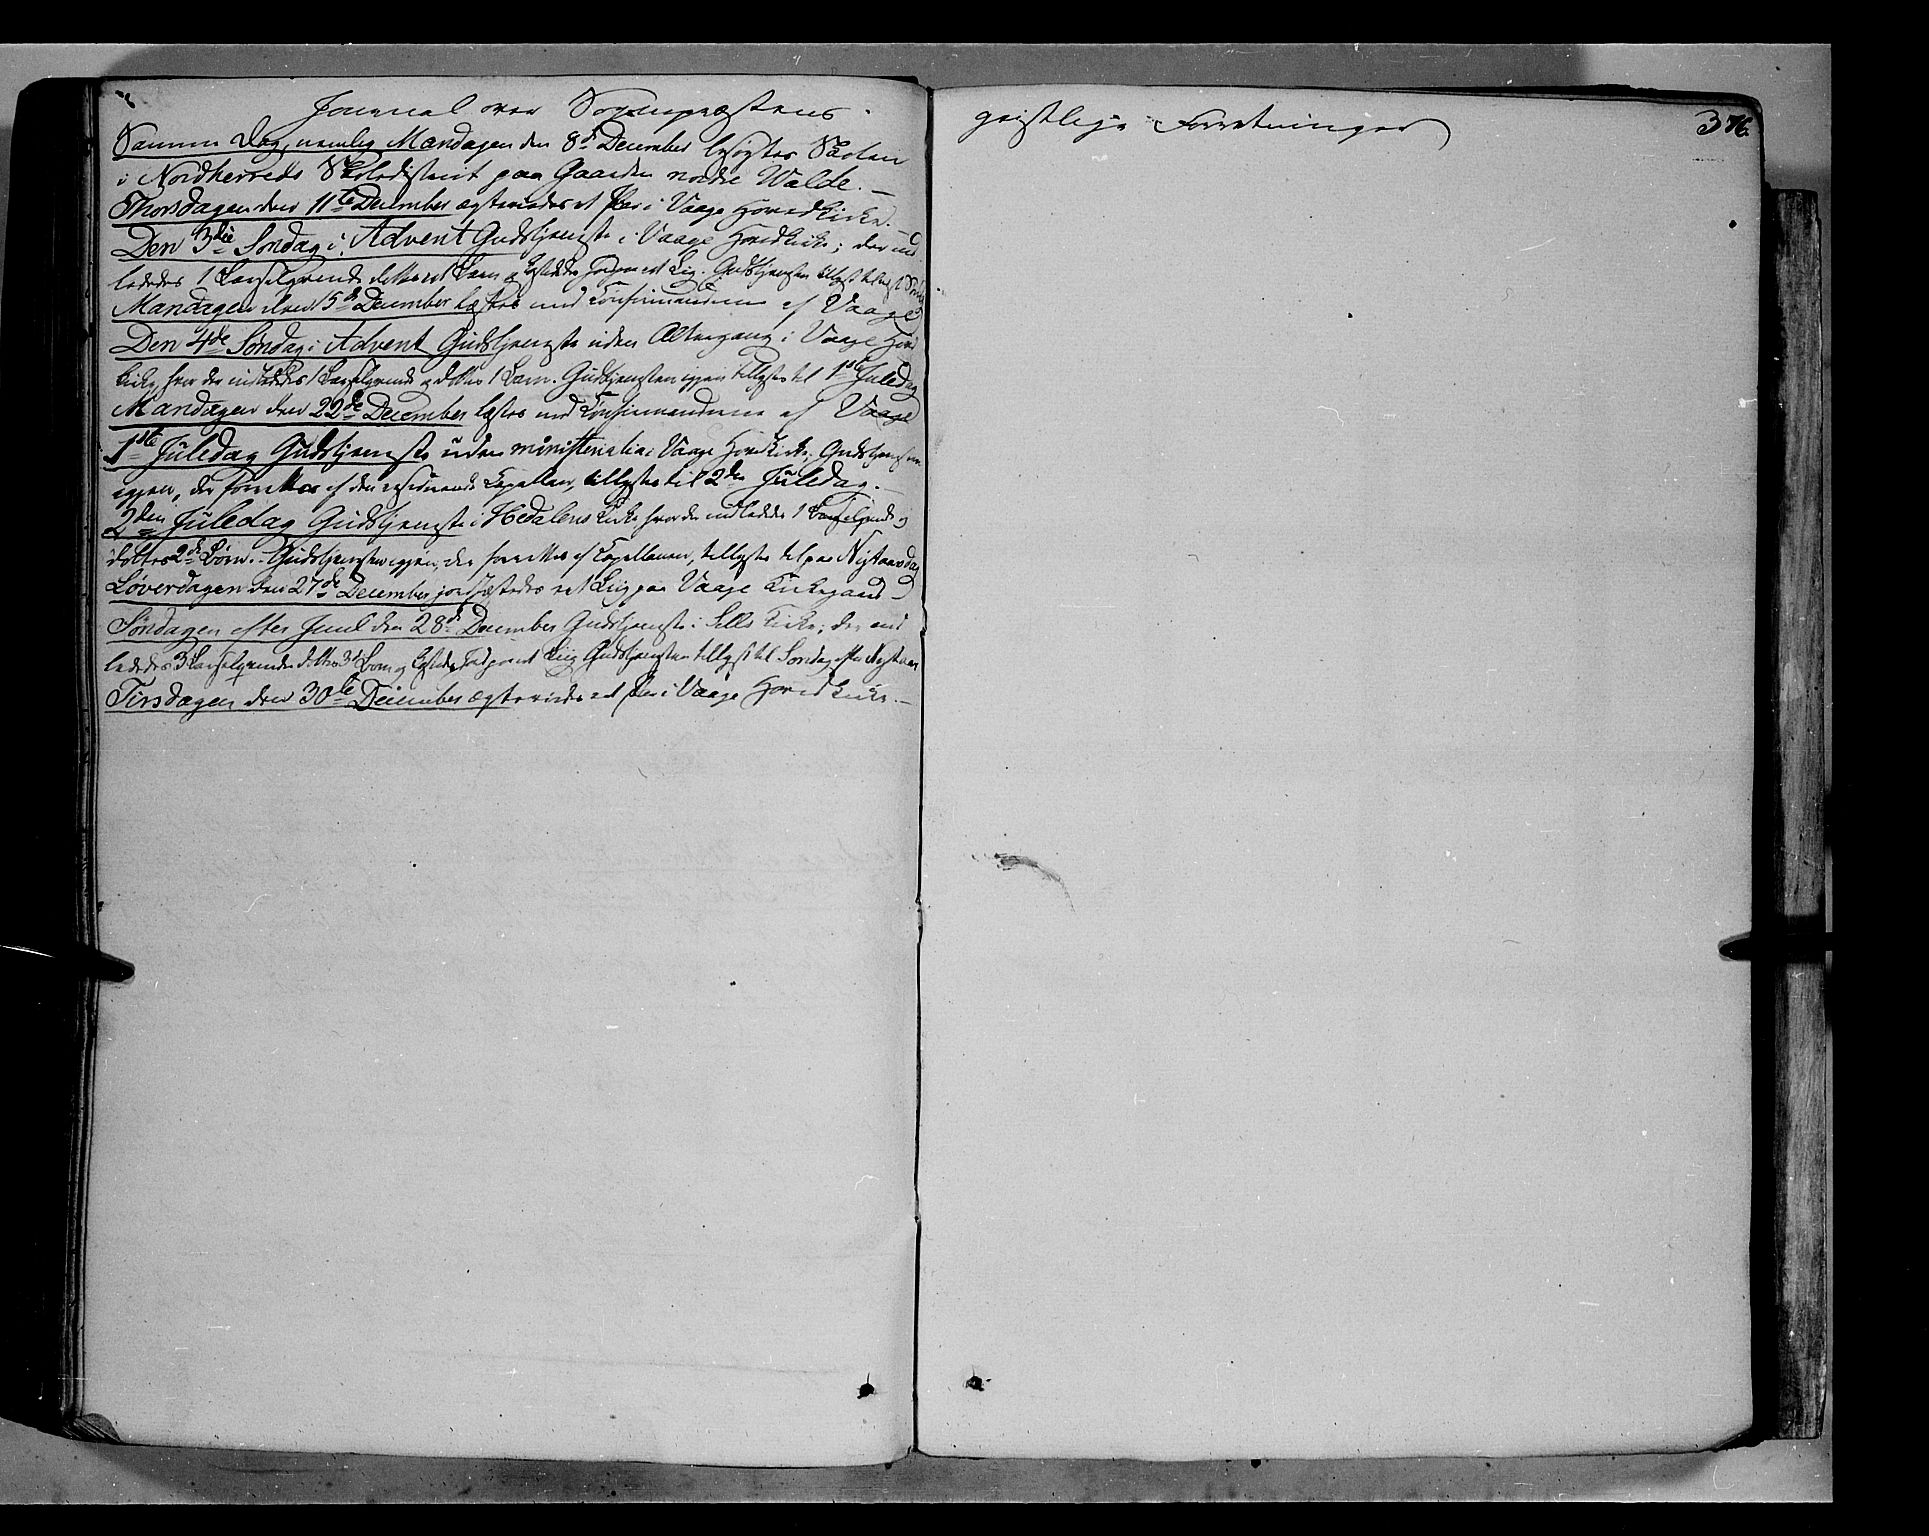 Journal over Sognepræstens
geistlige Forretninger
376.
Samme Dag, nemlig Mandagen den 8de December besøgtes Skolen
i Nordherreds Skoledistrict paa Gaarden nordre Valde. –
Thorsdagen den 11te December ægteviedes et Par i Vaage Hovedkirke. –
Den 3die Søndag i Advent Gudstjeneste i Vaage Hovedkirke; der ind
lededes 1 Barselqvinde døbtes et Barn og Lig. Gudstjenesten
Mandagen den 15de December læstes med Confirmanderne af Vaage
Den 4de Søndag i Advent Gudstjeneste uden Altergang i Vaage Hoved
kirke, hvor der indlededes 1 Barselqvinde og døbtes 1 Barn. Gudstjenesten igjen tillystes til 1ste Juledag
Mandagen den 22de December læstes med Confirmanderne af Vaage
1ste Juledag Gudstjeneste uden ministerialia i Vaage Hovedkirke; Gudstjenesten
igjen, der forrettes af den residerende Capellan, tillystes til 2den Juledag. –
2den Juledag Gudstjeneste i Hedalens Kirke hvor der indlededes 1 Barselqvinde og
døbtes 2de Børn. – Gudstjenesten igjen, der forrettes af Capellanen, tillystes til paa Nytaarsdag
Løverdagen den 27de December jordfæstedes et Liig paa Vaage Kirkegaard
Søndagen efter Juul den 28de December Gudstjeneste i Sells Kirke; der ind
ledes 3 Barselqvinder døbtes 3 Børn og Liig Gudstjenesten tillyst til Søndag efter Nytaar
Tirsdagen den 30te December ægteviedes et Par i Vaage Hovedkirke. –